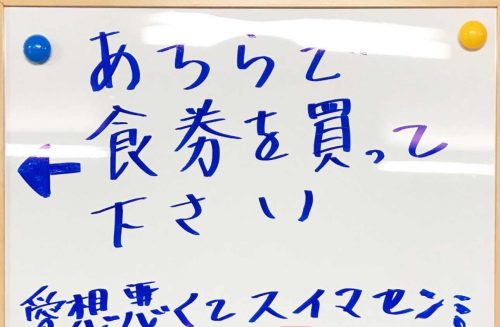 あちらで
食券を買って
下さい
愛想悪くてスイマセン